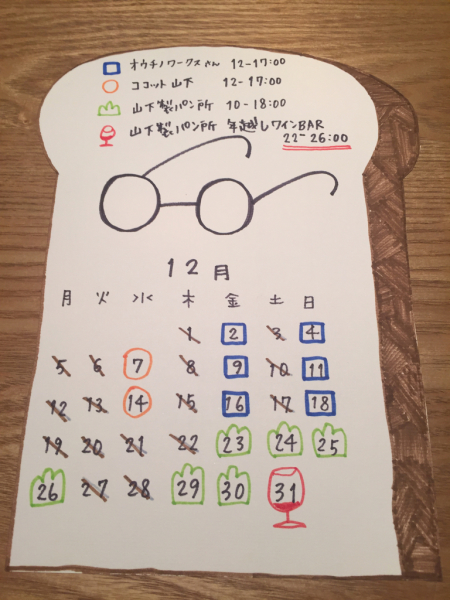 オウチノワークスさん 12-17:00
ココット山下 12-17:00
山下製パン所 10-18:00
山下製パン所 年越しワインBAR
22-26:00
12月
月 火 水 木 金 土 日
1 2 3 4
5 6 7 8 9 10 11
12 13 14 15 16 17 18
19 20 21 22 23 24 25
26 27 28 29 30 31